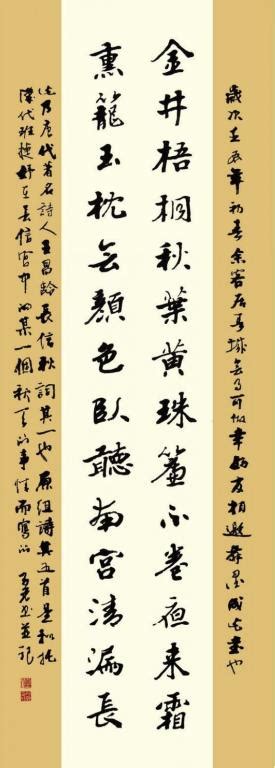 歲次壬辰年初春余客居城無事可做幸好友相邀舞墨成此書也
金井梧桐秋葉黄珠簾不卷夜来霜
熏籠玉枕無顔色臥聽南宫清漏長
此乃唐代著名詩人王昌齡長信秋詞其一也原組詩共五首是托
漢代班婕妤在長信宫中的某一個秋天的事情而寫的并記